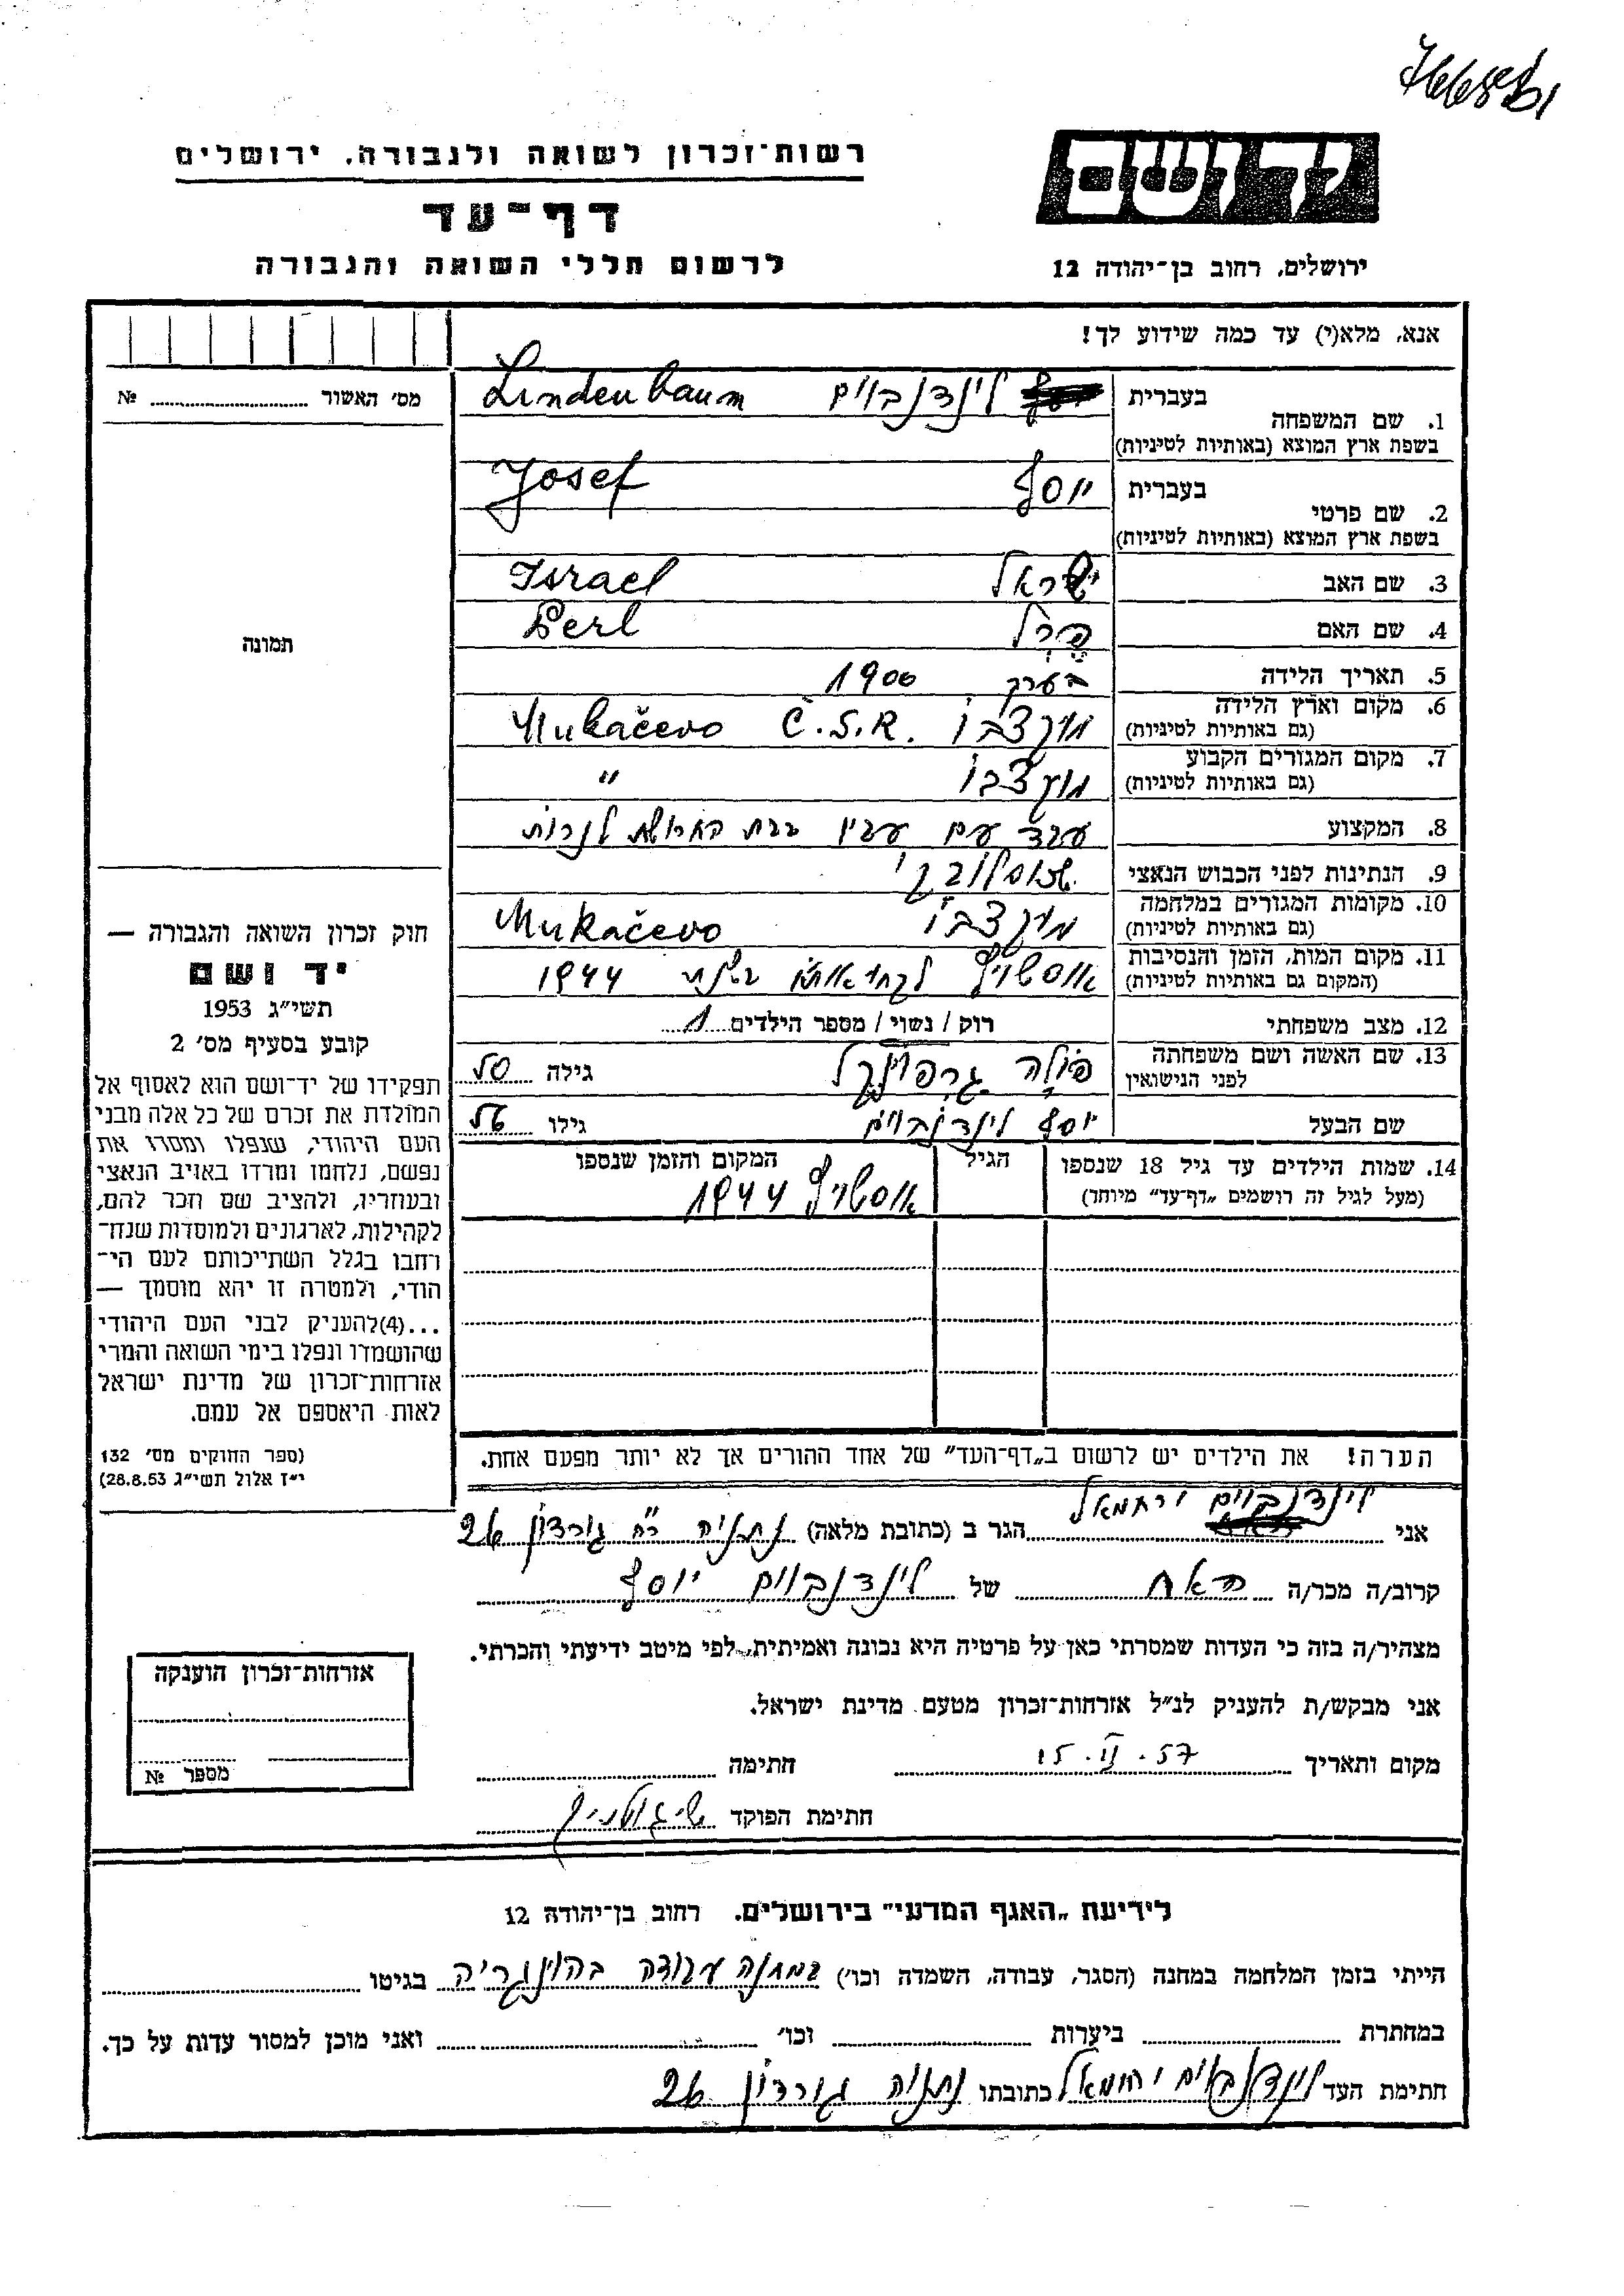 רשות־זכרון לשואה ולגבורה. ירושלים
דף־עד
לרשום חללי השואה והגבורה
יד ושם
ירושלים, רחוב בן־יהודה 12
אנא, מלא(י) עד כמה שידוע לך!
מס׳ האשור № 
1. שם המשפחה בעברית לינדנבוים Lindenbaum
בשפת ארץ המוצא (באותיות לטיניות)
2. שם פרטי בעברית יוסף Josef
בשפת ארץ המוצא (באותיות לטיניות)
3. שם האב ישראל Israel
4. שם האם פרל Perl
5. תאריך הלידה בערך 1900
6. מקום וארץ הלידה מונקצבו Mukačevo Č.S.R.
(גם באותיות לטיניות)
7. מקום המגורים הקבוע מונקצבו "
(גם באותיות לטיניות)
8. המקצוע עבד עם בבית לנרות
9. הנתינות לפני הכבוש הנאצי
10. מקומות המגורים במלחמה מונקצבו Mukačevo
(גם באותיות לטיניות)
11. מקום המות, הזמן והנסיבות אוסשויץ לקחו אותו בשנת 1944
(המקום גם באותיות לטיניות)
12. מצב משפחתי רוק / נשוי / מספר הילדים 1
13. שם האשה ושם משפחתה פולה גילה 50
לפני הנישואין
שם הבעל יוסף לינדנבוים גילו 56
14. שמות הילדים עד גיל 18 שנספו הגיל המקום והזמן שנספו
(מעל לגיל זה רושמים „דף־עד״ מיוחד) אוסשויץ 1944
תמונה
חוק זכרון השואה והגבורה —
יד ושם
תשי״ג 1953
קובע בסעיף מס׳ 2
תפקידו של יד־ושם הוא לאסוף אל
המולדת את זכרם של כל אלה מבני
העם היהודי, שנפלו ומסרו את
נפשם, נלחמו ומרדו באויב הנאצי
ובעוזריו, ולהציב שם וזכר להם,
לקהילות, לארגונים ולמוסדות שנח־
רחבו בגלל השתייכותם לעם הי־
הודי, ולמטרה זו יהא מוסמך —
...(4)להעניק לבני העם היהודי
שהושמדו ונפלו בימי השואה והמרי
אזרחות־זכרון של מדינת ישראל
לאות היאספם אל עמם.
(ספר החוקים מס׳ 132
י״ז אלול תשי״ג 28.8.53)
הערה! את הילדים יש לרשום ב„דף־העד״ של אחד ההורים אך לא יותר מפעם אחת.
אני לינדנבוים ירחמאל הגר ב (כתובת מלאה) נתניה רח׳ גורדון 26
קרוב/ה מכר/ה האח של לינדנבוים יוסף
מצהיר/ה בזה כי העדות שמסרתי כאן על פרטיה היא נכונה ואמיתית, לפי מיטב ידיעתי והכרתי.
אני מבקש/ת להעניק לנ״ל אזרחות־זכרון מטעם מדינת ישראל.
מקום ותאריך 15.II.57 חתימה
חתימת הפוקד
אזרחות־זכרון הוענקה
מספר №
לידיעת „האגף המדעי״ בירושלים. רחוב בן־יהודה 12
הייתי בזמן המלחמה במחנה (הסגר, עבודה, השמדה וכו׳) במחנה עבודה בהונגריה בגיטו
במחתרת ביערות וכו׳ ואני מוכן למסור עדות על כך.
חתימת העד לינדנבוים ירחמאל כתובתו נתניה גורדון 26